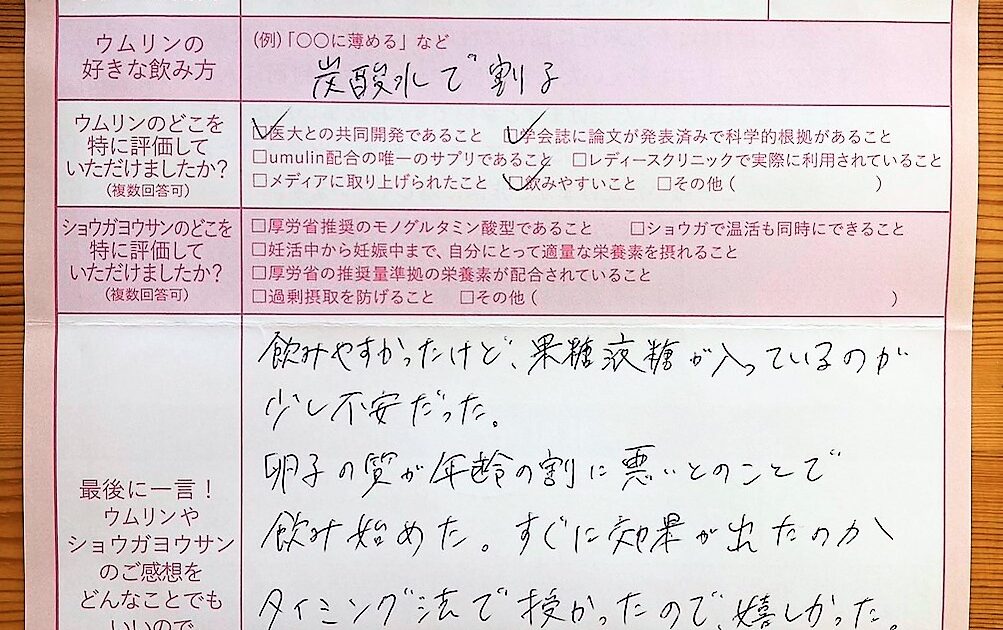 ウムリンの
好きな飲み方
(例)「〇〇に薄める」など
炭酸水で割る
ウムリンのどこを
特に評価して
いただけましたか?
(複数回答可)
☑医大との共同開発であること ☑学会誌に論文が発表済みで科学的根拠があること
□umulin配合の唯一のサプリであること □レディースクリニックで実際に利用されていること
□メディアに取り上げられたこと ☑飲みやすいこと □その他( )
ショウガヨウサンのどこを
特に評価して
いただけましたか?
(複数回答可)
□厚労省推奨のモノグルタミン酸型であること □ショウガで温活も同時にできること
□妊活中から妊娠中まで、自分にとって適量な栄養素を摂れること
□厚労省の推奨量準拠の栄養素が配合されていること
□過剰摂取を防げること □その他( )
最後に一言!
ウムリンや
ショウガヨウサン
のご感想を
どんなことでも
いいので
飲みやすかったけど、果糖液糖が入っているのが
少し不安だった。
卵子の質が年齢の割に悪いとのことで
飲み始めた。すぐに効果が出たのか、
タイミング法で授かったので、嬉しかった。